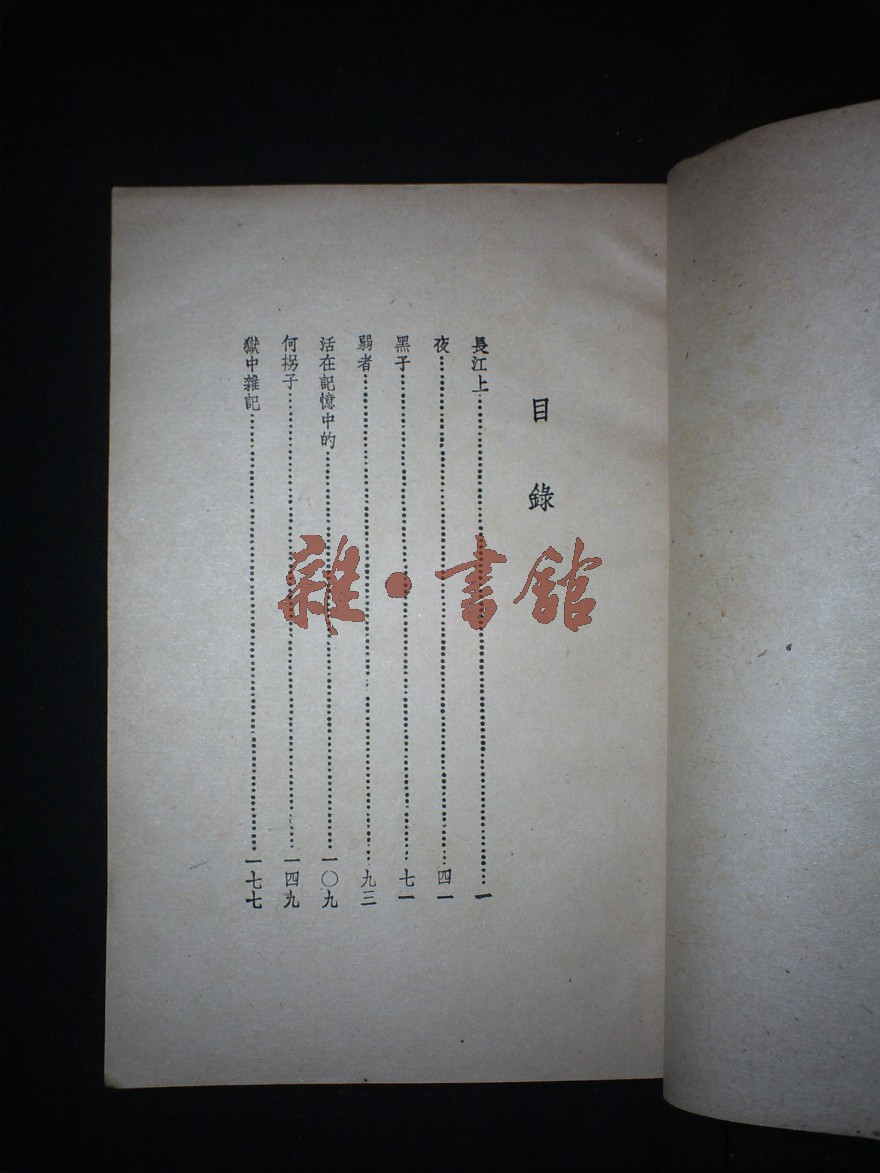 目錄
長江上⋯⋯⋯⋯一
夜⋯⋯⋯⋯四一
黑子⋯⋯⋯⋯七一
弱者⋯⋯⋯⋯九三
活在記憶中的⋯⋯⋯⋯一〇九
何拐子⋯⋯⋯⋯一四九
獄中雜記⋯⋯⋯⋯一七七
雜·書館